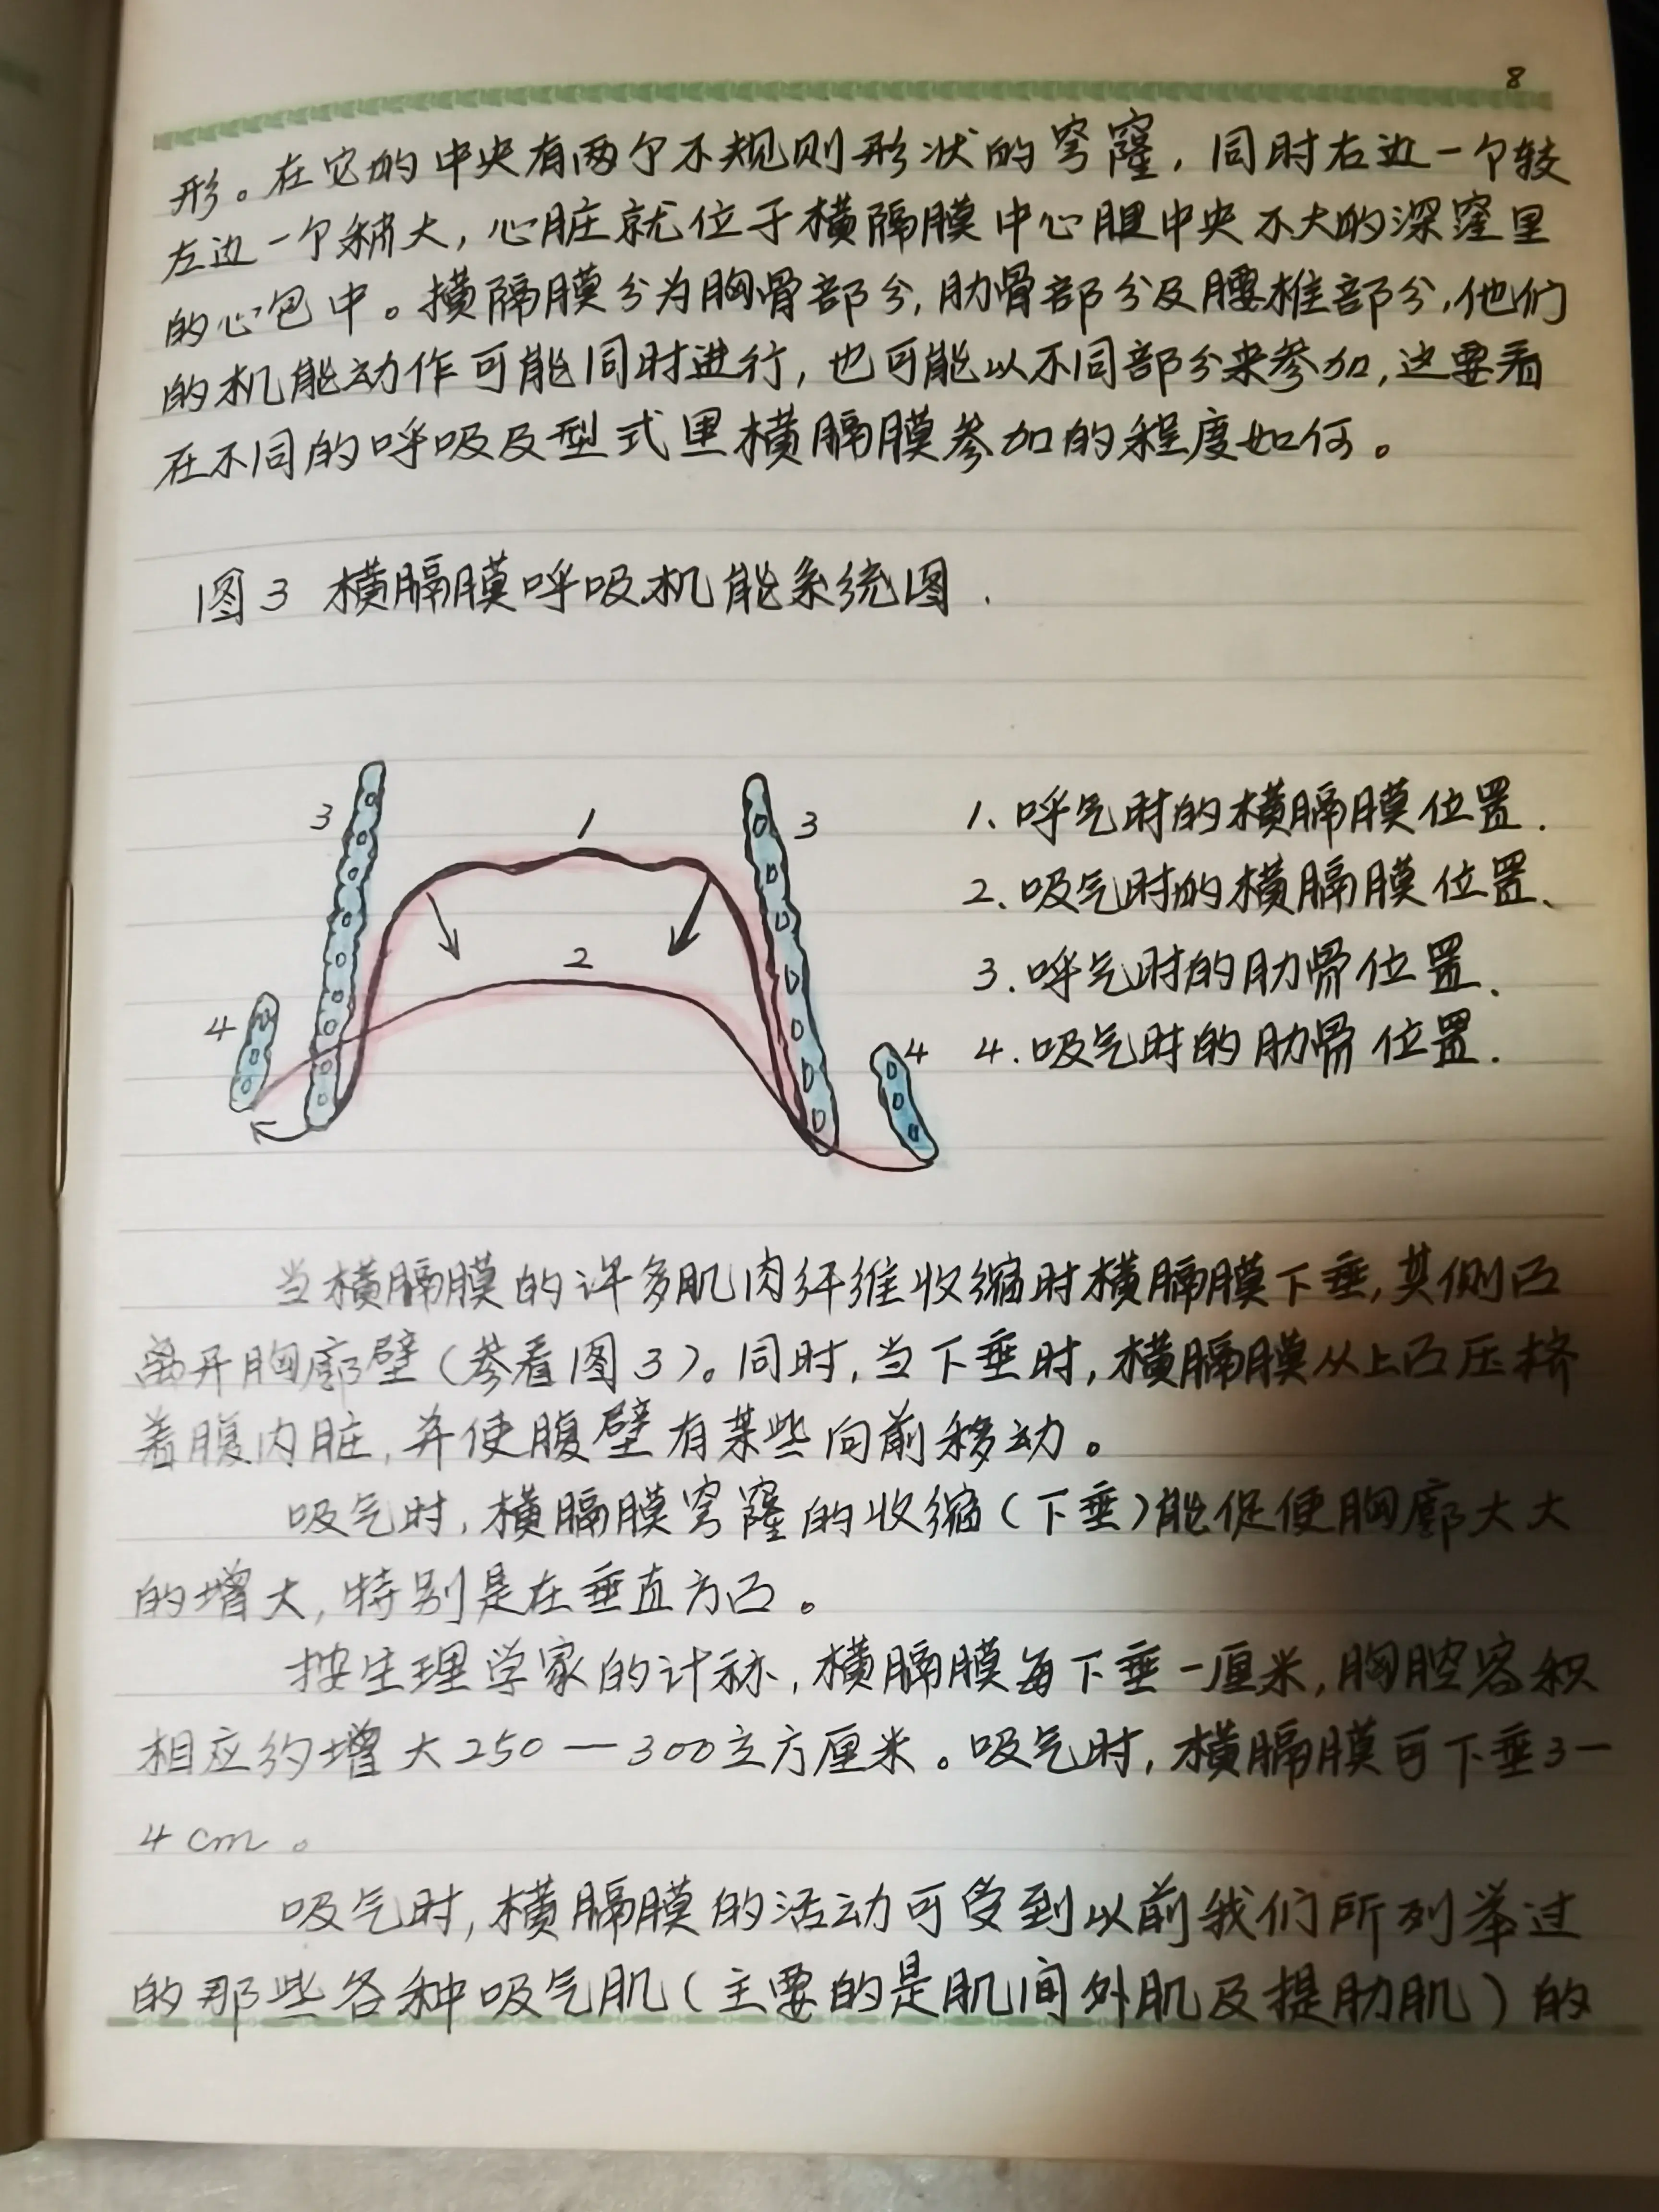 8
形。在它的中央有两个不规则形状的穹窿，同时右边一个较
左边一个稍大，心脏就位于横隔膜中心腱中央不大的深窪里
的心包中。横隔膜分为胸骨部分，肋骨部分及腰椎部分，他们
的机能动作可能同时进行，也可能以不同部分来参加，这要看
在不同的呼吸及型式里横膈膜参加的程度如何。
图3 横膈膜呼吸机能系统图.
3 1 3 1、呼气时的横膈膜位置.
2、吸气时的横膈膜位置、
2 3.呼气时的肋骨位置、
4 4 4.吸气时的肋骨位置.
当横膈膜的许多肌肉纤维收缩时横膈膜下垂，其侧凸
离开胸廓壁（参看图3）。同时，当下垂时，横膈膜从上凸压挤
着腹内脏，并使腹壁有某些向前移动。
吸气时，横膈膜穹窿的收缩（下垂）能促使胸廓大大
的增大，特别是在垂直方凸。
按生理学家的计称，横膈膜每下垂一厘米，胸腔容积
相应约增大250—300立方厘米。吸气时，横膈膜可下垂3—
4cm。
吸气时，横膈膜的活动可受到以前我们所列举过
的那些各种吸气肌（主要的是肌间外肌及提肋肌）的